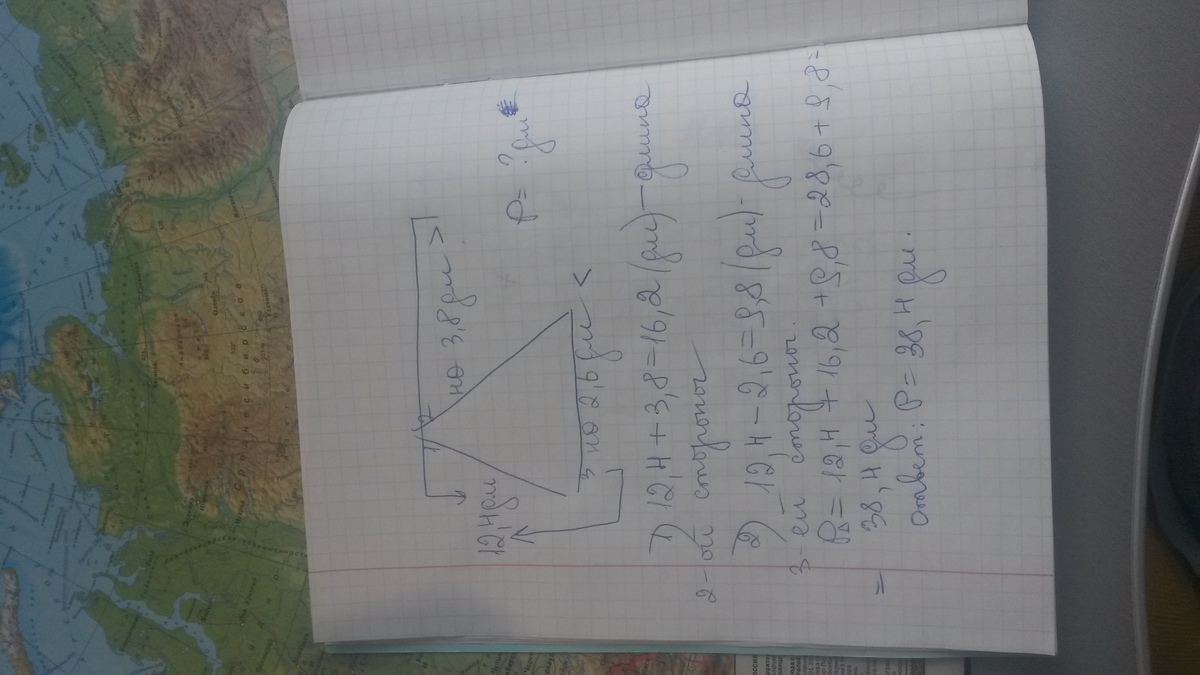 1 2 на 3,8 дм >
12,4 дм
P = ? дм
3 на 2,6 дм <
1) 12,4 + 3,8 = 16,2 (дм) — длина
2-ой стороны
2) 12,4 - 2,6 = 9,8 (дм) - длина
3-ей стороны.
P∆ = 12,4 + 16,2 + 9,8 = 28,6 + 9,8 =
= 38,4 дм
Ответ: P = 38,4 дм.